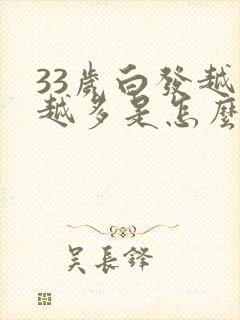 33歲白發越
越多是怎麼
吴長鋒